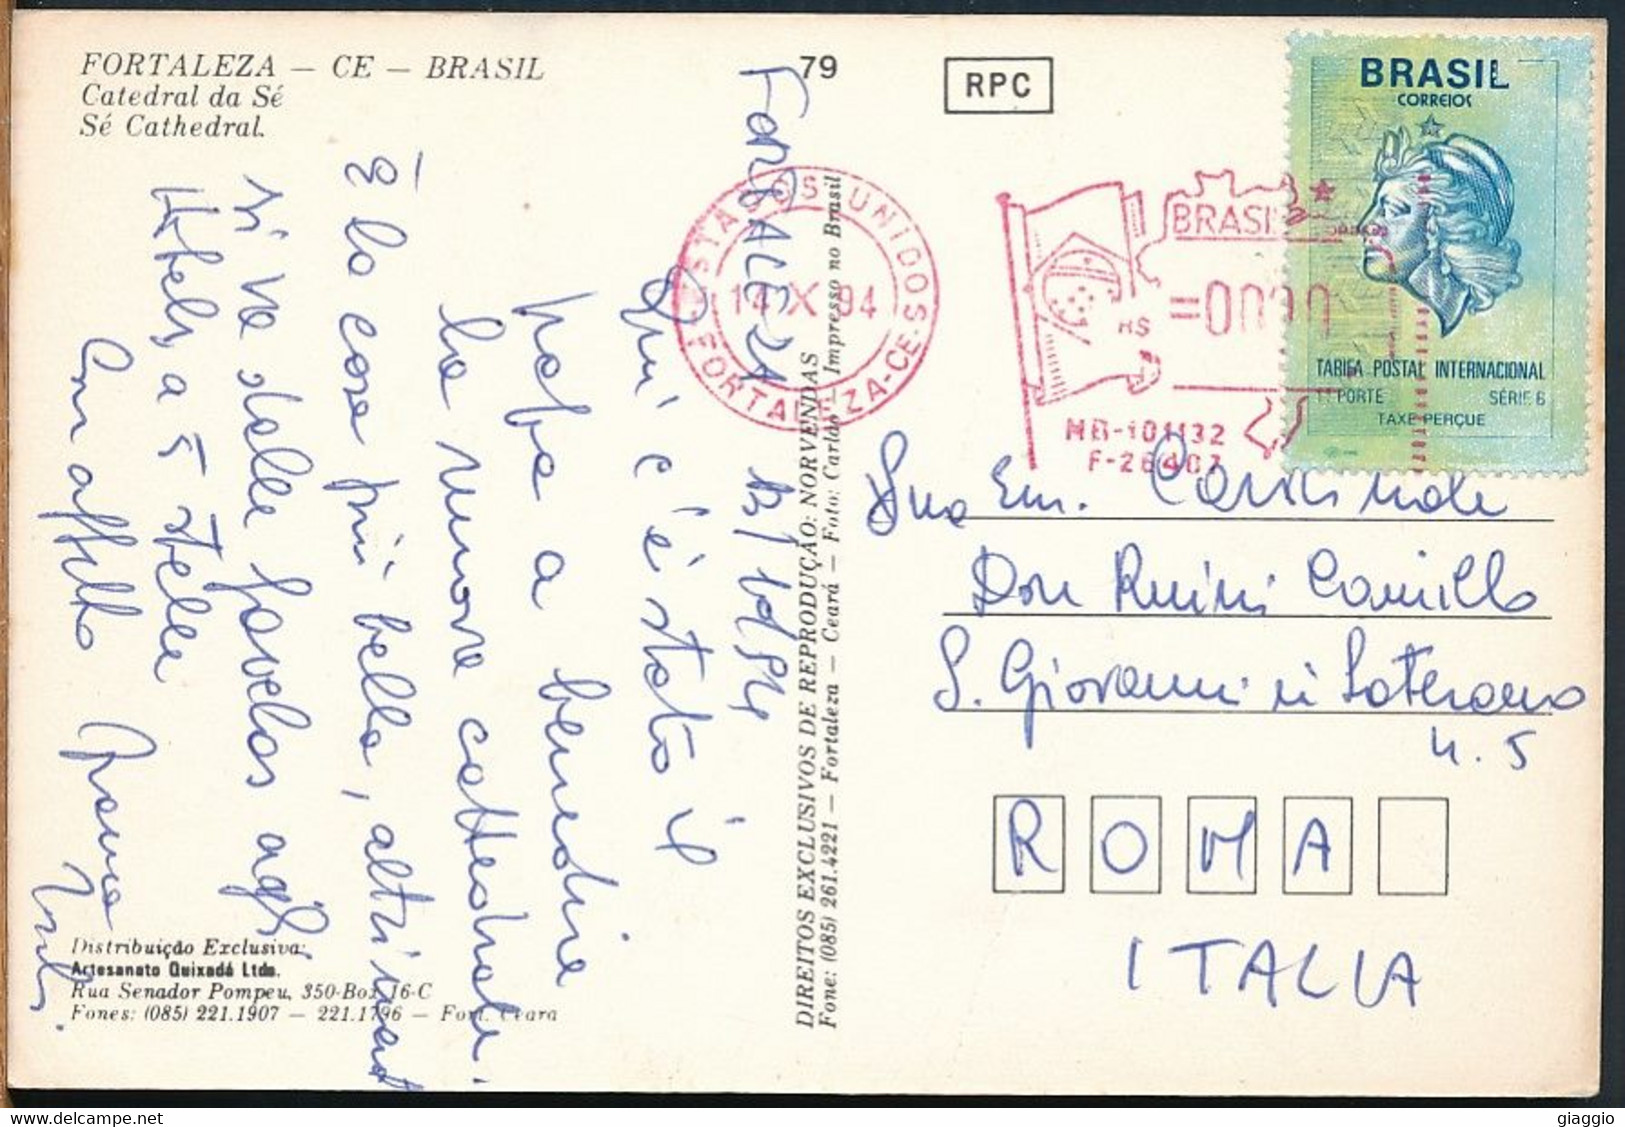 FORTALEZA — CE — BRASIL
Catedral da Sé
Sé Cathedral.
79
RPC
BRASIL
CORREIOS
TARIFA POSTAL INTERNACIONAL
1º PORTE SÉRIE 6
TAXE PERÇUE
ESTADOS UNIDOS
14 X 94
FORTALEZA-CE
BRASIL
MB-101132
F-26407
FORTALEZA 13/10/94
Qui c'è stato il
Papa a benedire
la nuova cattedrale.
È la cosa più bella, altrimenti
si va dalle favelas agli
Hotels a 5 stelle
Con affetto
DIREITOS EXCLUSIVOS DE REPRODUÇÃO: NORVENDAS
Fone: (085) 261.4221 — Fortaleza — Ceará — Foto: Carlão — Impresso no Brasil
Sua Em. Cardinale
Don Ruini Camillo
S. Giovanni in Laterano
n. 5
ROMA
ITALIA
Distribuição Exclusiva:
Artesanato Quixadá Ltda.
Rua Senador Pompeu, 350-Box 16-C
Fones: (085) 221.1907 — 221.1796 — Fort. Ceara
giaggio